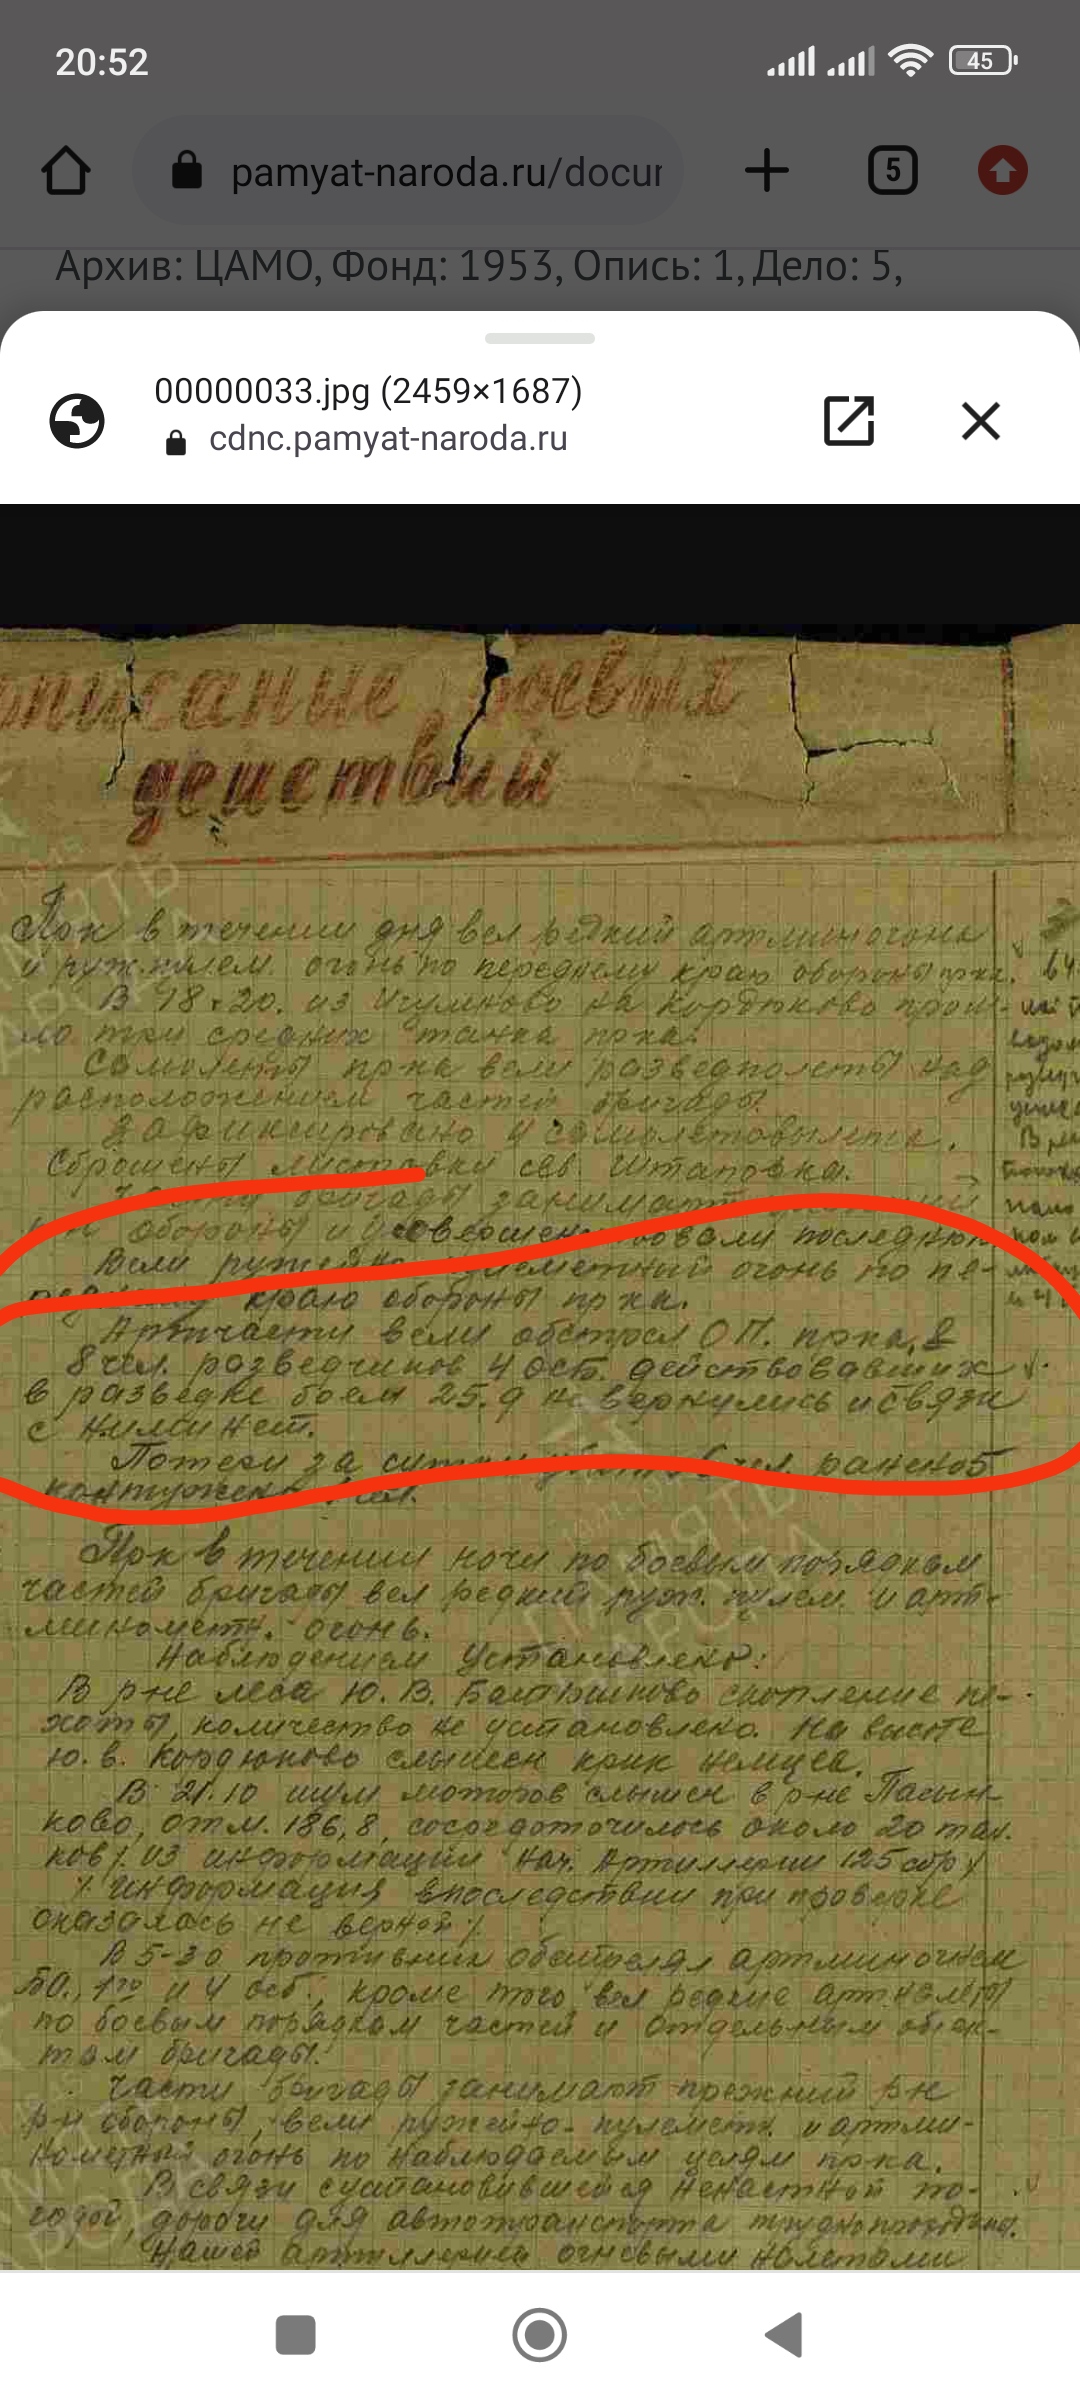 20:52
45
pamyat-naroda.ru/docur
5
Архив: ЦАМО, Фонд: 1953, Опись: 1, Дело: 5,
00000033.jpg (2459×1687)
cdnc.pamyat-naroda.ru
описание боевых
действий
Прк в течении дня вел редкий артмин огонь
и руж. пулем. огонь по переднему краю обороны прка.
В 18.20. из Игумново на Кордюково прош-
ло три средних танка прка.
Самолеты прка вели разведполеты над
расположением частей бригады.
Зафиксировано 4 самолетовылета.
Сброшены листовки сев. Штаповка.
Части бригады занимают
р-н обороны и совершенствовали последнюю
Вели ружейно пулеметный огонь по пе-
реднему краю обороны прка.
Артчасти вели обстрел ОП. прка, в
8 чел. разведчиков 4 осб. действовавших
в разведке боем 25.9 не вернулись и связи
с ними нет.
Потери за сутки убит 6 чел. ранено 5
контужено чел.
Прк в течении ночи по боевым порядкам
частей бригады вел редкий руж. пулем. и арт-
минометн. огонь.
Наблюдением установлено:
В р-не леса Ю. В. скопление пе-
хоты, количество не установлено. На высоте
Ю. в. Кордюково слышен крик немцев.
В 21.10 шум моторов слышен в р-не Пасын-
ково, отм. 186,8, сосредоточилось около 20 тан.
ков/. из информации Нач. Артиллерии 125 сбр/
/. Информация впоследствии при проверке
оказалась не верной /.
В 5-30 противник обстрелял артмин огнем
БО., 1го и 4 осб., кроме того вел редкие арт. налеты
по боевым порядкам частей и отдельным объек-
там бригады.
Части бригады занимают прежний р-н
р-н обороны, вели ружейно-пулеметн. и артми-
нометный огонь по наблюдаемым целям прка.
В связи с установившейся ненастной по-
годой, дороги для автотранспорта труднопроходимы.
Нашей артиллерией огневыми налетами